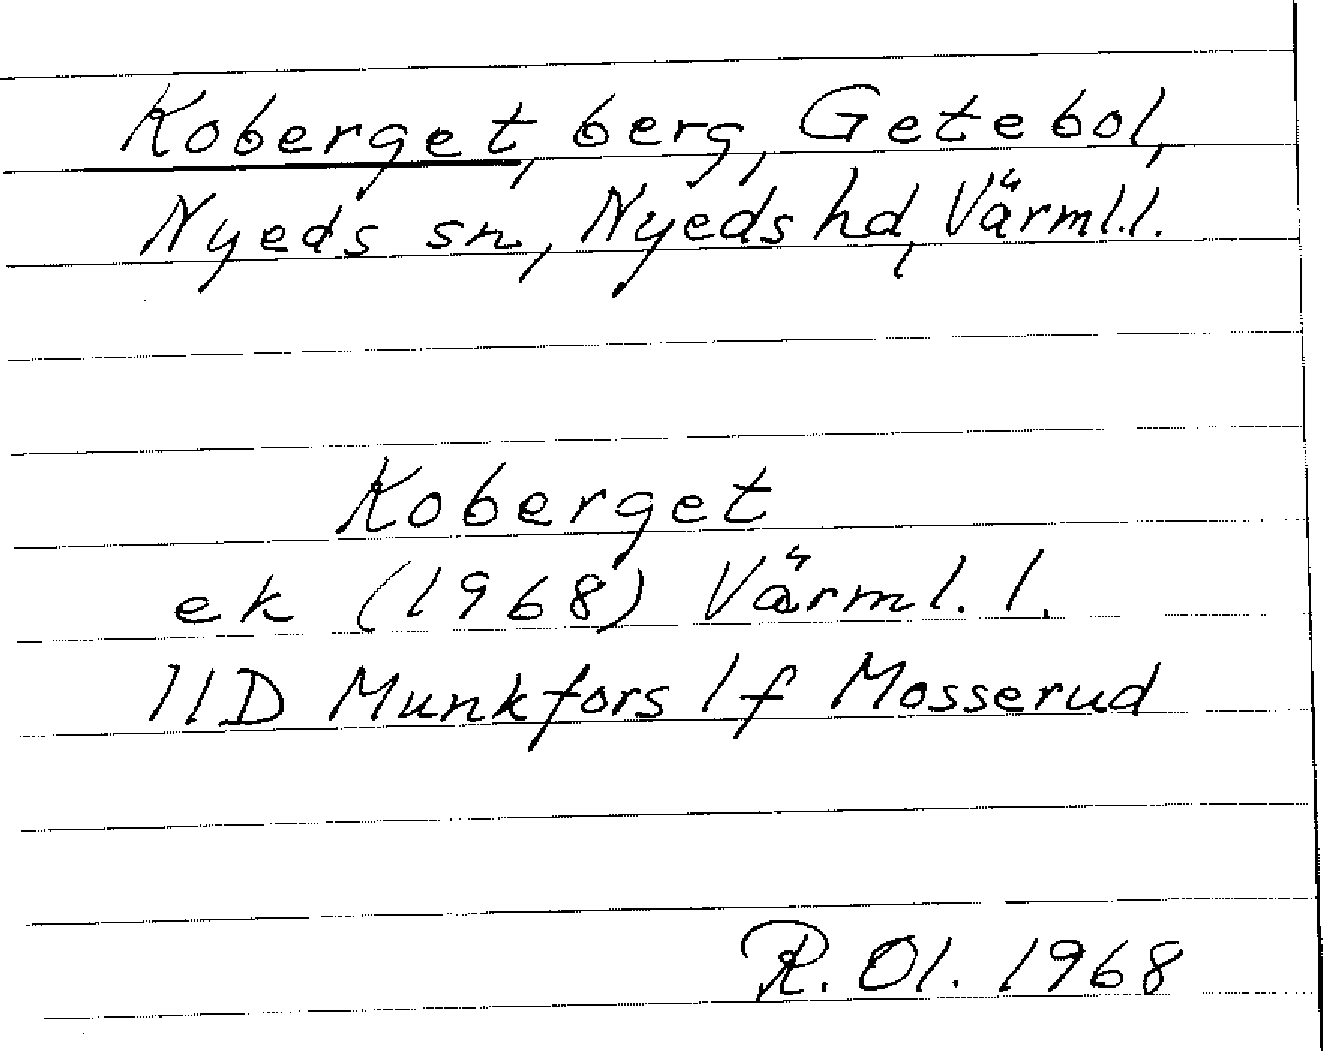 Koberget, berg, Getebol,
Nyeds sn, Nyeds hd, Värml.l.
Koberget
ek (1968) Värml. l.
11D Munkfors 1f Mosserud
R. Ol. 1968